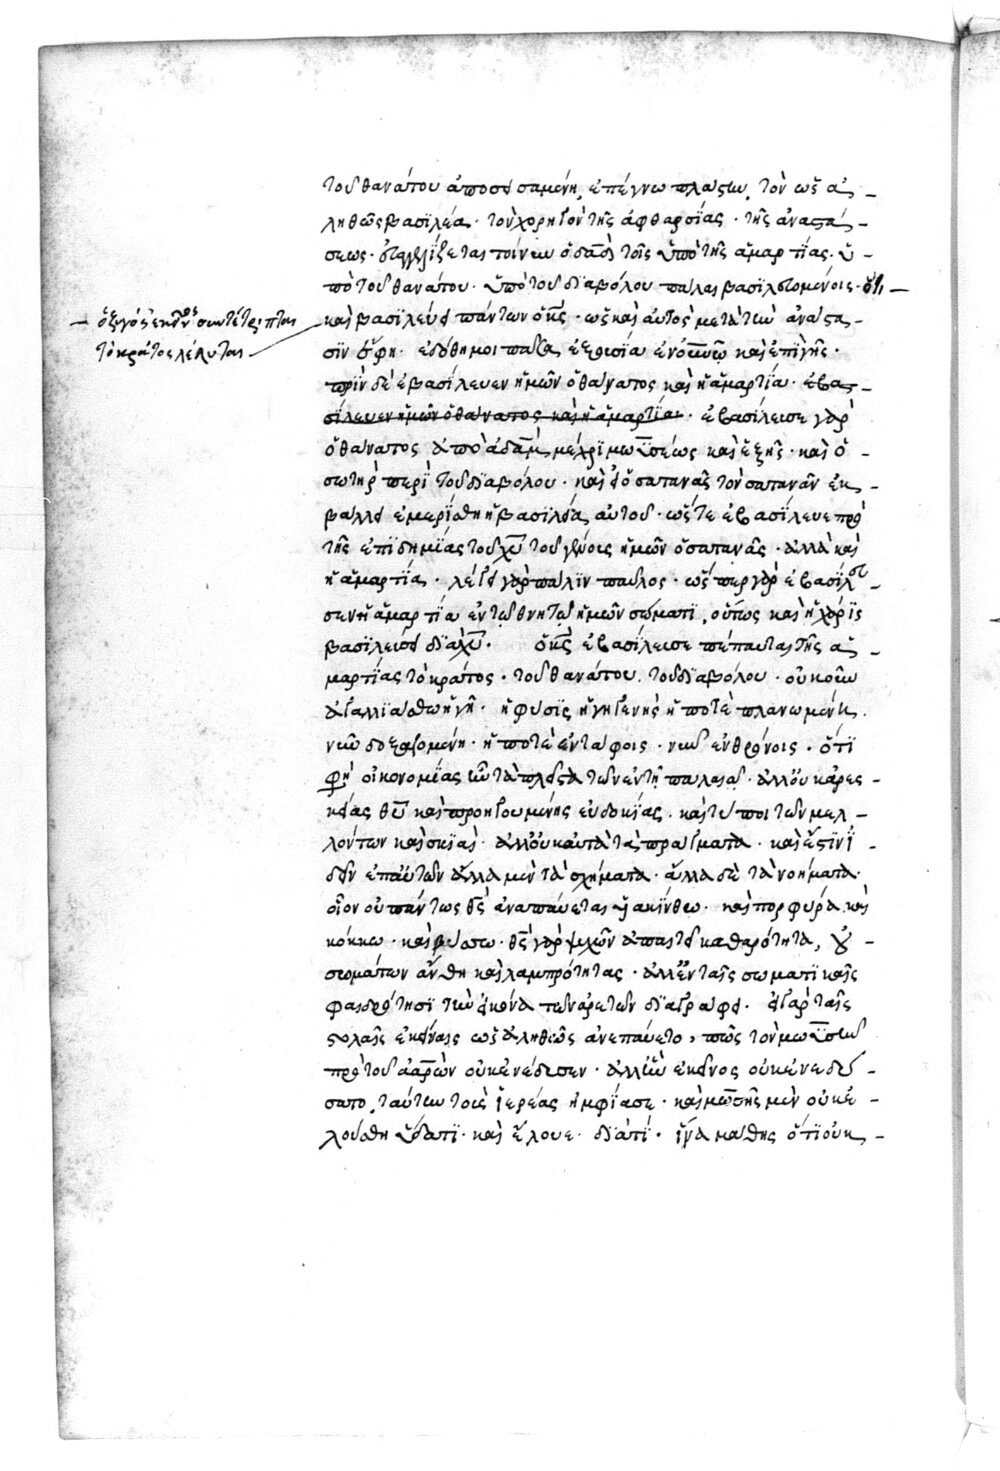 τοῦ θανάτου ἀποσεισαμένη, ἐπέγνω πλάστην, τὸν ὡς ἀ-
ληθῶς βασιλέα. τὸν χορηγὸν τῆς ἀφθαρσίας. τῆς ἀναστά-
σεως. εὐαγγελίζεται τοίνυν ὁ δαδ τοῖς ὑπὸ τῆς ἁμαρτίας. ὑ-
πὸ τοῦ θανάτου. ὑπὸ τοῦ διαβόλου πάλαι βασιλευομένοις. ὅτι
— ὁ ζυγὸς ἐκείνος συντέτριπται
τὸ κράτος λέλυται
καὶ βασιλεὺς πάντων ὁ κς. ὡς καὶ αὐτὸς μετὰ τὴν ἀνάστα-
σιν ἔφη. ἐδόθη μοι πᾶσα ἐξουσία ἐν οὐνῶ καὶ ἐπὶ γῆς.
πρὶν δὲ ἐβασίλευεν ἡμῶν ὁ θάνατος καὶ ἡ ἁμαρτία. ἐβασ-
σίλευεν ἡμῶν ὁ θάνατος καὶ ἡ ἁμαρτία. ἐβασίλευσε γὰρ
ὁ θάνατος ἀπὸ ἀδὰμ μέχρι μωϋσέως καὶ ἑξῆς. καὶ ὁ
σωτὴρ περὶ τοῦ διαβόλου. καὶ εἰ ὁ σατανᾶς τὸν σατανᾶν ἐκ-
βάλλει ἐμερίσθη ἡ βασιλεία αὐτοῦ. ὥστε ἐβασίλευε πρὸ
τῆς ἐπιδημίας τοῦ χυ τοῦ γένους ἡμῶν ὁ σατανᾶς. ἀλλὰ καὶ
ἡ ἁμαρτία. λέγει γὰρ πάλιν παῦλος. ὥσπερ γὰρ ἐβασίλευ-
σεν ἡ ἁμαρτία ἐν τῶ θνητῶ ἡμῶν σώματι, οὕτως καὶ ἡ χάρις
βασιλεύσει διὰ χυ. ὁ κς ἐβασίλευσε πέπαυται τῆς ἁ-
μαρτίας τὸ κράτος. τοῦ θανάτου. τοῦ διαβόλου. οὐκοῦν
ἀγαλλιάσθω ἡ γῆ. ἡ φύσις ἡ γηγενὴς ἥ ποτε πλανωμένη.
νῦν δοξαζομένη. ἥ ποτε ἐν τάφοις. νῦν ἐν θρόνοις. ὅτι
οἰκονομίας ἦν τὰ πλεῖστα τῶν ἐν τῆ παλαιᾶ. ἀλλ' οὐκ ἀρεσ-
κείας θυ καὶ προηγουμένης εὐδοκίας. καὶ τύποι τῶν μελ-
λόντων καὶ σκιαί. ἀλλ' οὐκ αὐτὰ τὰ πράγματα. καὶ ἔστιν ἰ-
δεῖν ἐπ' αὐτῶν ἄλλα μὲν τὰ σχήματα. ἄλλα δὲ τὰ νοήματα.
οἷον οὐ πάντως θς ἀναπαύεται ὑακίνθω. καὶ πορφύρα καὶ
κόκκω. καὶ βύσσω. θς γὰρ ψυχῶν ἀπαιτεῖ καθαρότητα, οὐ
σωμάτων ἄνθη καὶ λαμπρότητας. ἀλλ' ἐν ταῖς σωματικαῖς
φαιδρότησι τὴν εἰκόνα τῶν ἀρετῶν διαγράφει. εἰ γὰρ ταῖς
στολαῖς ἐκείναις ὡς ἀληθῶς ἀνεπαύετο, πῶς τὸν μωϋσῆν
πρὸ τοῦ ἀαρὼν οὐκ ἐνέδυσεν. ἀλλ' ἦν ἐκεῖνος οὐκ ἐνεδύ-
σατο, ταύτην τοὺς ἱερέας ἠμφίασε. καὶ μωσῆς μὲν οὐκ ἐ-
λούσθη ὕδατι. καὶ ἔλουε. διατί. ἵνα μάθης ὅτι οὐκ-